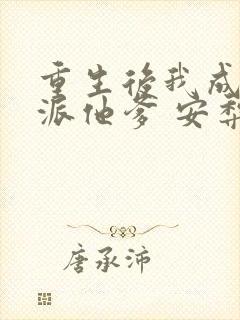 重生後我成
派他爹 安梨
唐承沛